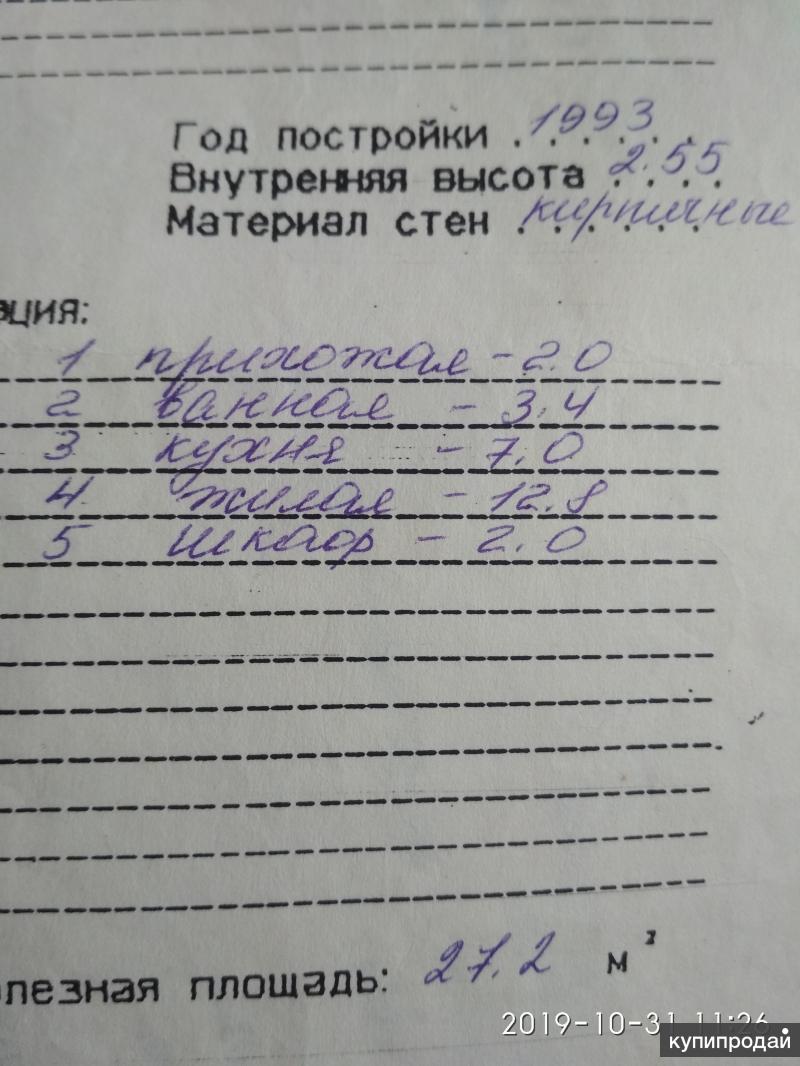 Год постройки 1993
Внутренняя высота 2.55
Материал стен кирпичные
ция:
1 прихожая - 2.0
2 ванная - 3.4
3 кухня - 7.0
4 жилая - 12.8
5 шкаф - 2.0
лезная площадь: 27.2 м²
2019-10-31 11:26
купипродай